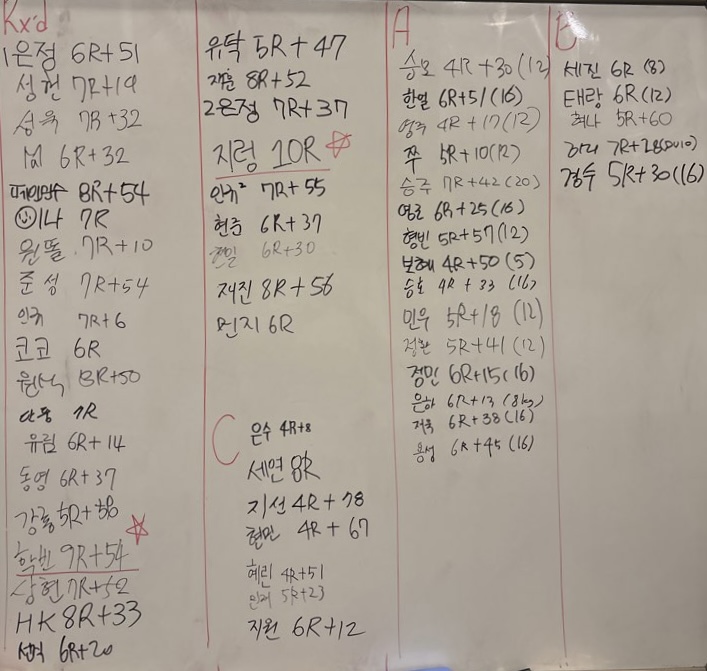 Rx'd
1은정 6R+51
성헌 7R+19
성욱 7R+32
6R+32
8R+54
이나 7R
원똘 7R+10
준성 7R+54
인규 7R+6
코코 6R
8R+50
7R
유림 6R+14
동영 6R+37
강룡 5R+38
학빈 9R+54
상현 7R+52
HK 8R+33
6R+20
유탁 5R+47
8R+52
2은정 7R+37
지렁 10R
인규² 7R+55
현주 6R+37
6R+30
재진 8R+56
먼지 6R
C
은수 4R+8
세연 8R
지선 4R+78
현민 4R+67
혜린 4R+51
5R+23
지원 6R+12
A
승모 4R+30(12)
한얼 6R+51(16)
영주 4R+17(12)
쭈 5R+10(12)
승주 7R+42(20)
영호 6R+25(16)
형빈 5R+57(12)
보혜 4R+50(5)
승호 4R+33(16)
민우 5R+18(12)
정환 5R+41(12)
정민 6R+15(16)
은하 6R+13(8kg)
저욱 6R+38(16)
용성 6R+45(16)
B
세진 6R(8)
태랑 6R(12)
혜나 5R+60
7R+28
경수 5R+30(16)